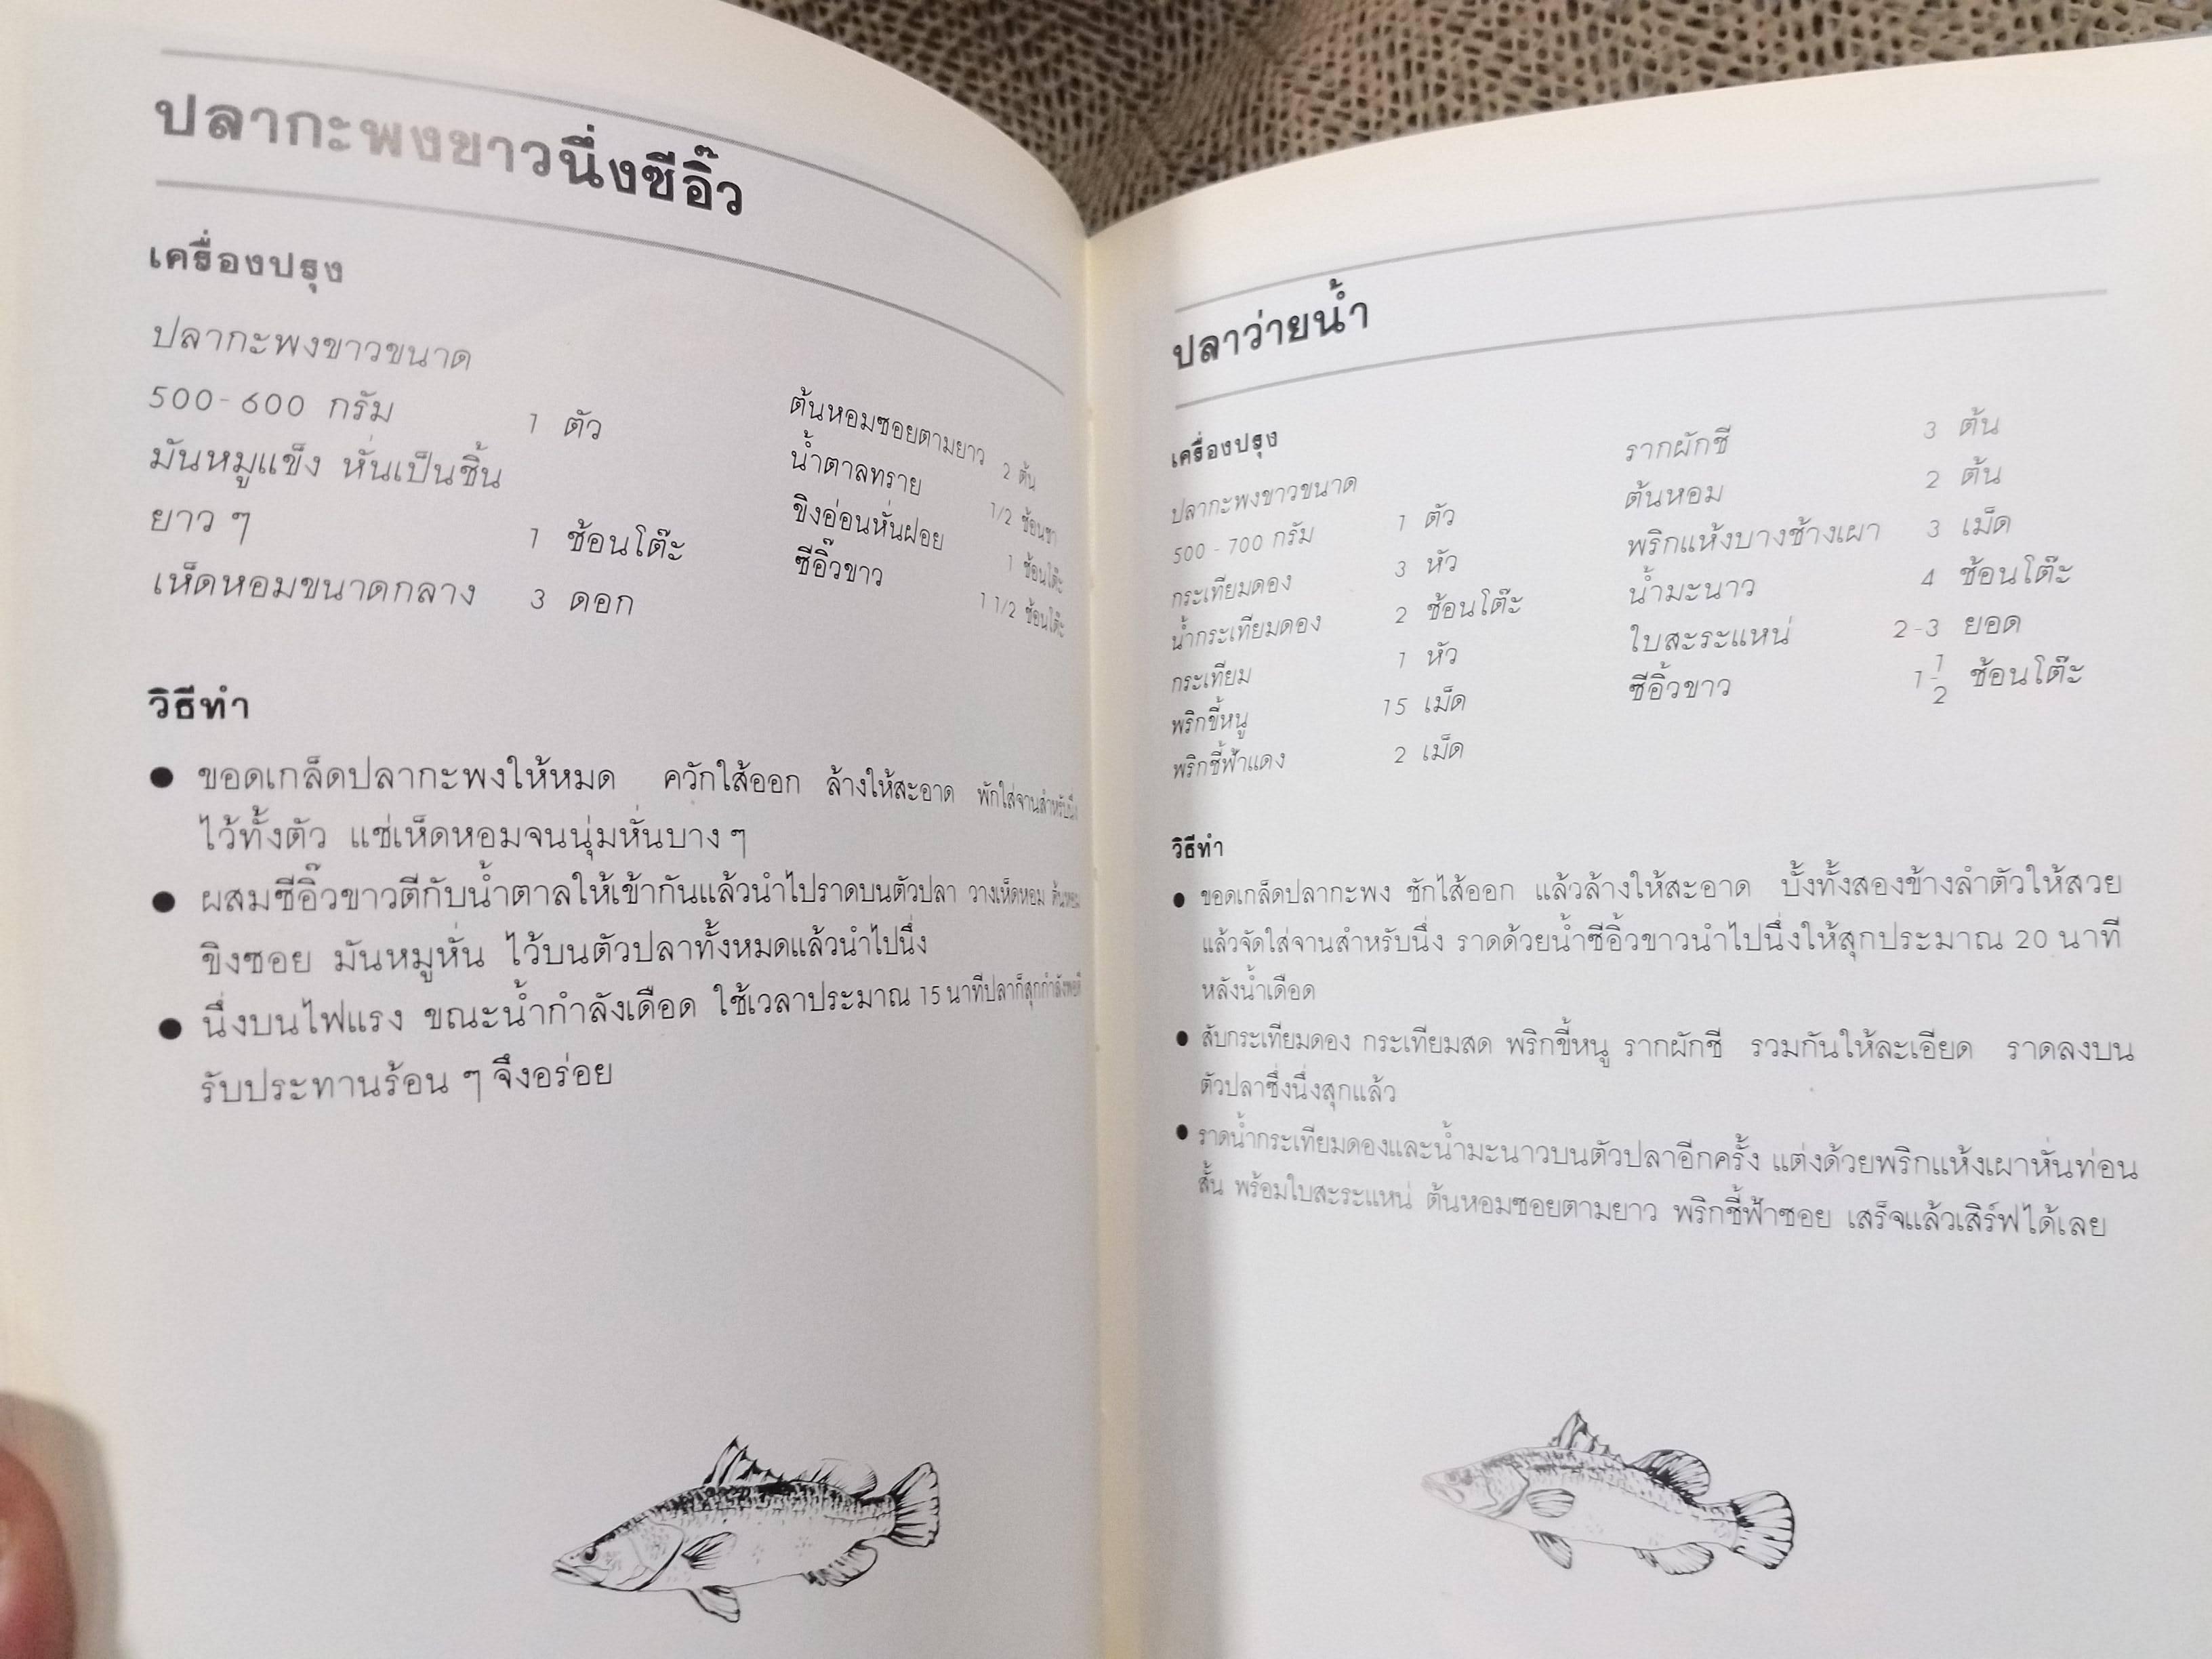 ปลากะพงขาวนึ่งซีอิ๊ว
เครื่องปรุง
ปลากะพงขาวขนาด
500-600 กรัม 1 ตัว
มันหมูแข็ง หั่นเป็นชิ้น
ยาว ๆ 1 ช้อนโต๊ะ
เห็ดหอมขนาดกลาง 3 ดอก
ต้นหอมซอยตามยาว 2 ต้น
น้ำตาลทราย 1/2 ช้อนชา
ขิงอ่อนหั่นฝอย 1 ช้อนโต๊ะ
ซีอิ๊วขาว 1 1/2 ช้อนโต๊ะ
วิธีทำ
● ขอดเกล็ดปลากะพงให้หมด ควักใส้ออก ล้างให้สะอาด พักใส่จานสำหรับนึ่ง
ไว้ทั้งตัว แช่เห็ดหอมจนนุ่มหั่นบาง ๆ
● ผสมซีอิ๊วขาวตีกับน้ำตาลให้เข้ากันแล้วนำไปราดบนตัวปลา วางเห็ดหอม ต้นหอม
ขิงซอย มันหมูหั่น ไว้บนตัวปลาทั้งหมดแล้วนำไปนึ่ง
● นึ่งบนไฟแรง ขณะน้ำกำลังเดือด ใช้เวลาประมาณ 15 นาทีปลาก็สุกกำลังพอดี
รับประทานร้อน ๆ จึงอร่อย
ปลาว่ายน้ำ
เครื่องปรุง
ปลากะพงขาวขนาด
500 - 700 กรัม 1 ตัว
กระเทียมดอง 3 หัว
น้ำกระเทียมดอง 2 ช้อนโต๊ะ
กระเทียม 1 หัว
พริกขี้หนู 15 เม็ด
พริกชี้ฟ้าแดง 2 เม็ด
รากผักชี 3 ต้น
ต้นหอม 2 ต้น
พริกแห้งบางช้างเผา 3 เม็ด
น้ำมะนาว 4 ช้อนโต๊ะ
ใบสะระแหน่ 2-3 ยอด
ซีอิ้วขาว 1 1/2 ช้อนโต๊ะ
วิธีทำ
● ขอดเกล็ดปลากะพง ชักไส้ออก แล้วล้างให้สะอาด บั้งทั้งสองข้างลำตัวให้สวย
แล้วจัดใส่จานสำหรับนึ่ง ราดด้วยน้ำซีอิ้วขาวนำไปนึ่งให้สุกประมาณ 20 นาที
หลังน้ำเดือด
● สับกระเทียมดอง กระเทียมสด พริกขี้หนู รากผักชี รวมกันให้ละเอียด ราดลงบน
ตัวปลาซึ่งนึ่งสุกแล้ว
● ราดน้ำกระเทียมดองและน้ำมะนาวบนตัวปลาอีกครั้ง แต่งด้วยพริกแห้งเผาหั่นท่อน
สั้น พร้อมใบสะระแหน่ ต้นหอมซอยตามยาว พริกชี้ฟ้าซอย เสร็จแล้วเสิร์ฟได้เลย